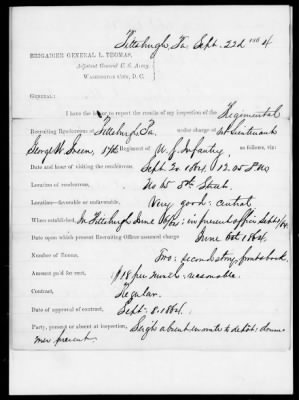 Pittsburgh, Pa Sept. 22d 1864
BRIGADIER GENERAL L. THOMAS,
Adjutant General U. S. Army,
WASHINGTON CITY, D. C.
GENERAL:
I have the honor to report the results of my inspection of the Regimental
Recruiting Rendezvous at Pittsburgh Pa. under charge of 1st Lieutenant
George W. 17th Regiment of U. S. Infantry, as follows, viz:
Date and hour of visiting the rendezvous, Sept. 20. 1864. 12.05 P.M.
Location of rendezvous, No 65 5th Street.
Location—favorable or unfavorable, Very good: central
When established, In Pittsburgh June in present office Sept 1/64.
Date upon which present Recruiting Officer assumed charge June 1864.
Number of Rooms, Two: second story, front & back.
Amount paid for rent, $18 per month: reasonable.
Contract, Regular.
Date of approval of contract, Sept. 8. 1864.
Party, present or absent at inspection, absent en route to depot:
present.